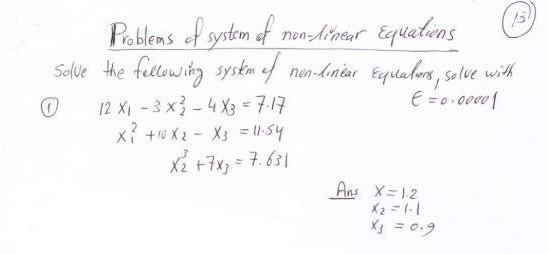 13
Problems of system of non-linear Equations
Solve the following system of non-linear Equations, solve with
ε = 0.00001
① 12 X₁ - 3 X₂² - 4 X₃ = 7.17
X₁² + 10 X₂ - X₃ = 11.54
X₂³ + 7X₃ = 7.631
Ans X = 1.2
X₂ = 1.1
X₃ = 0.9